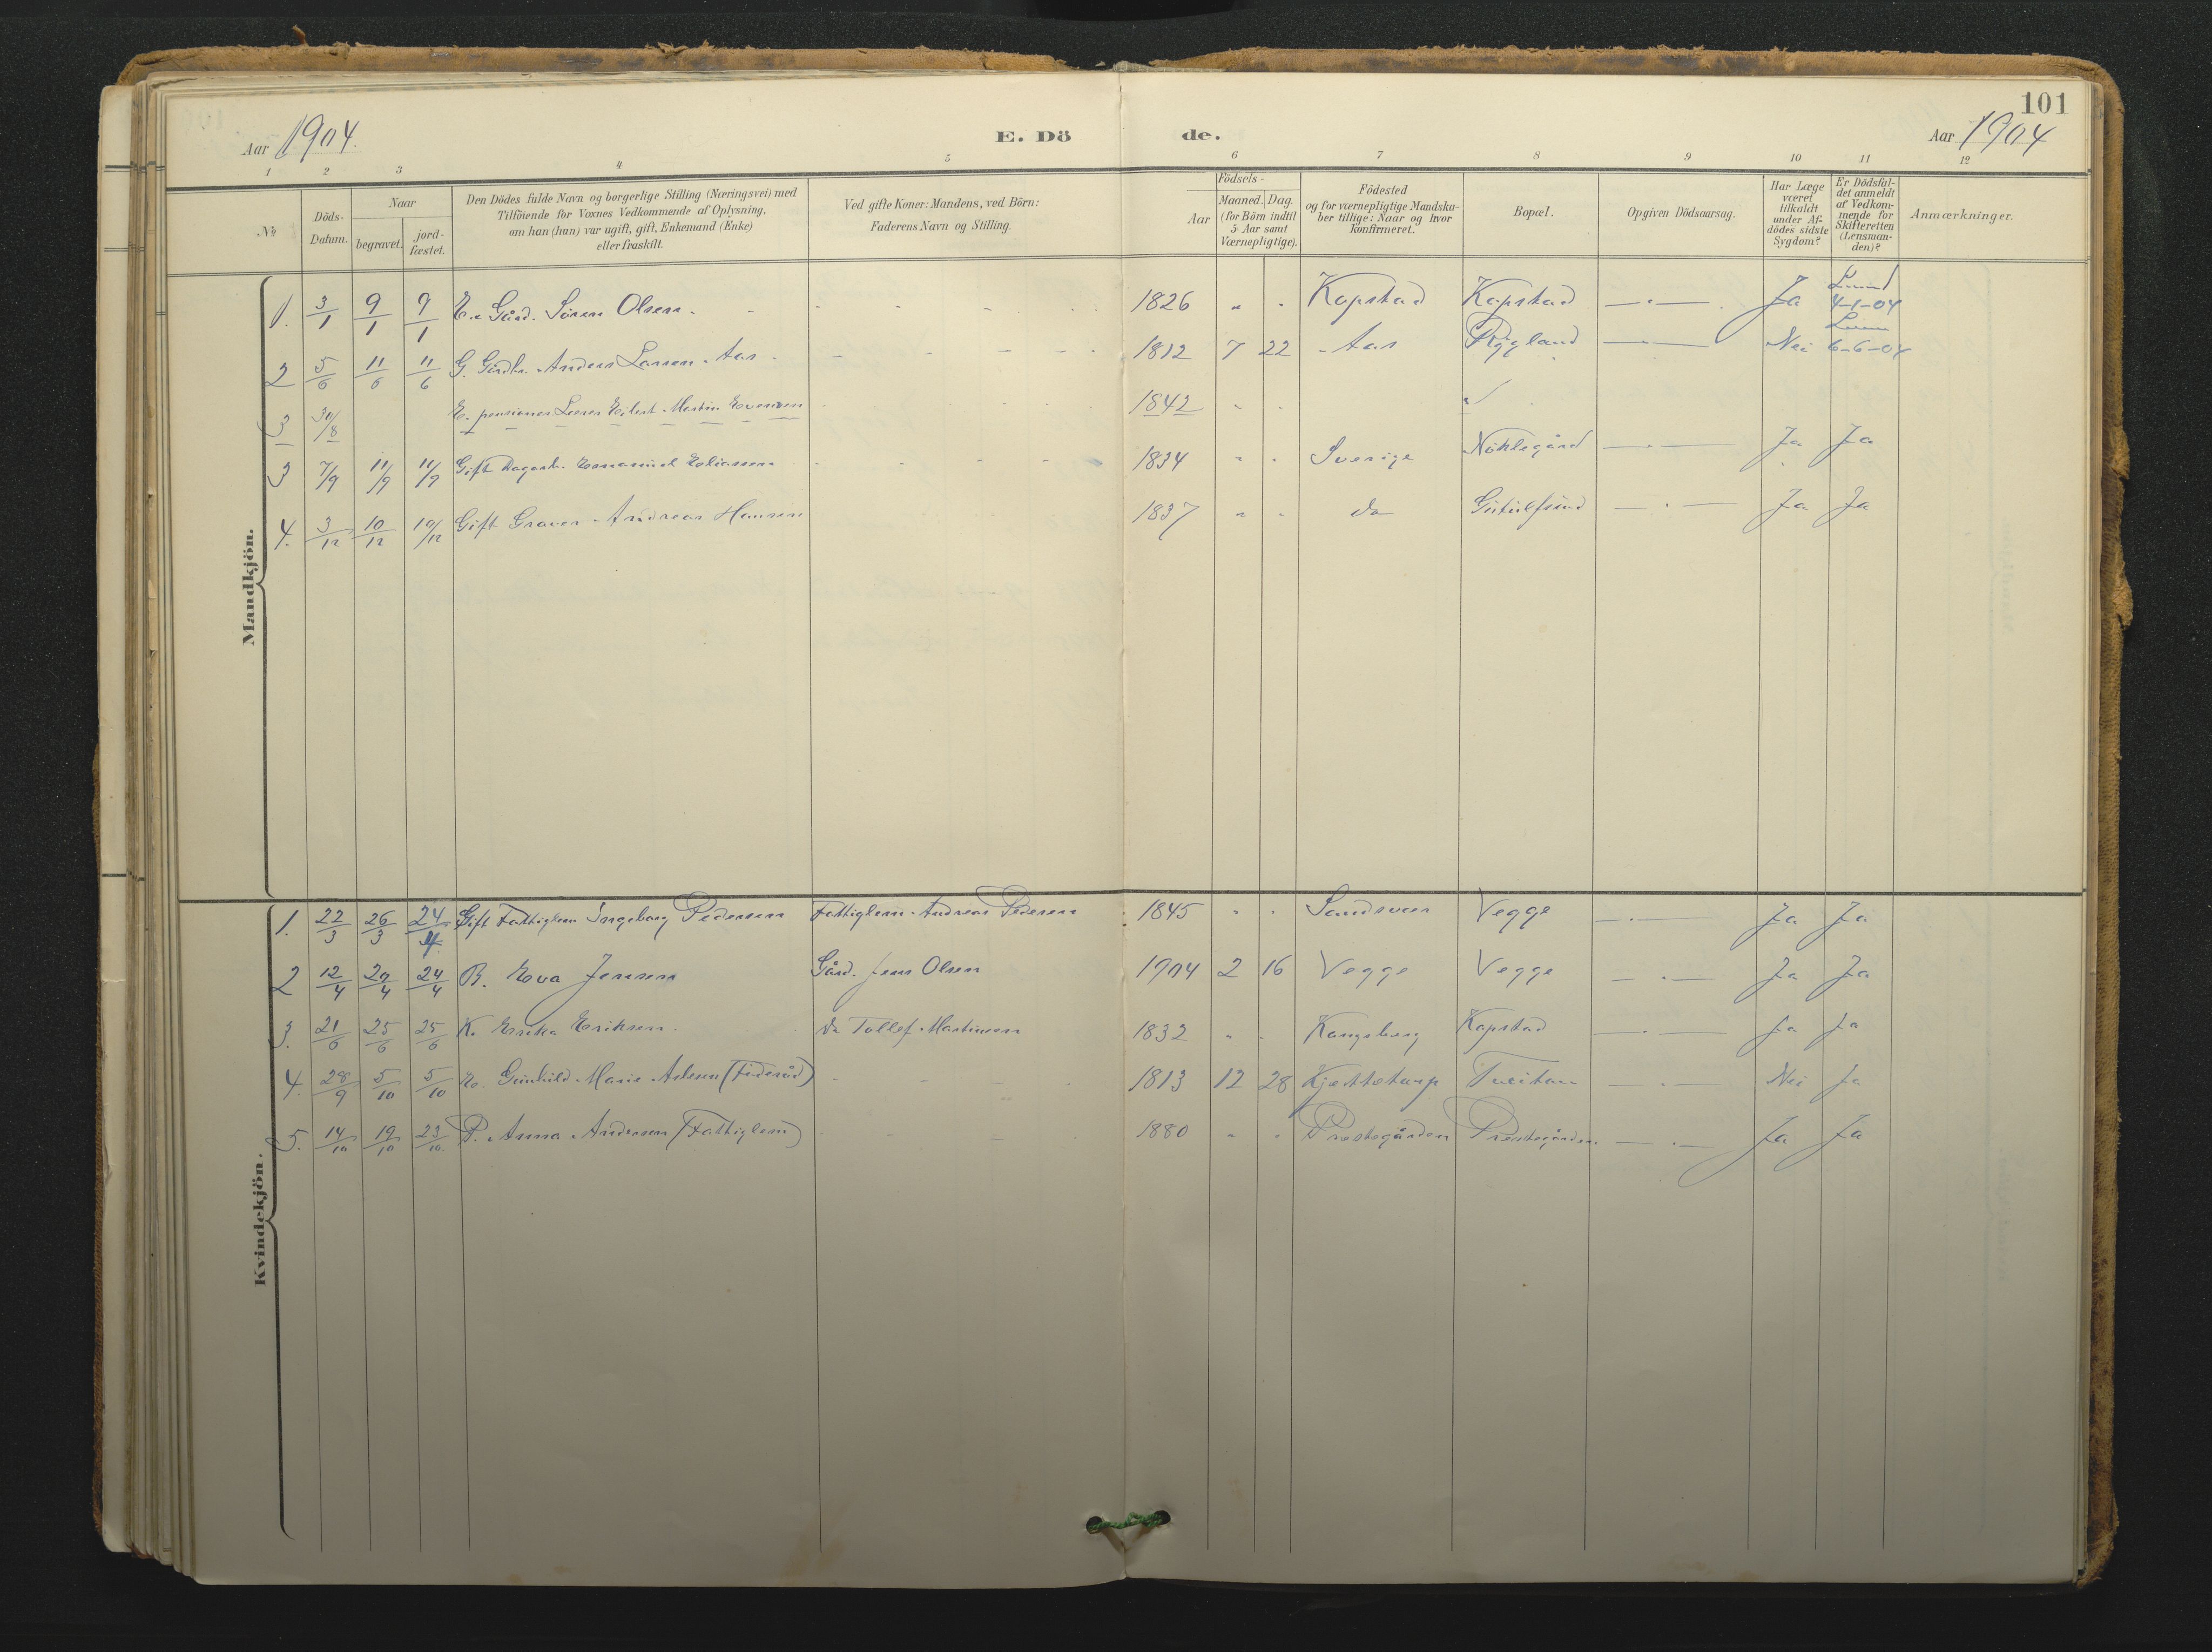 101
Aar 1904. E. Dö de. Aar 1904
1 2 3 4 5 6 7 8 9 10 11 12
No
Döds-Datum.
Naar
begravet. jord-fæstet.
Den Dödes fulde Navn og borgerlige Stilling (Næringsvei) med
Tilföiende for Voxnes Vedkommende af Oplysning,
om han (hun) var ugift, gift, Enkemand (Enke)
eller fraskilt.
Ved gifte Koner: Mandens, ved Börn:
Faderens Navn og Stilling.
Födsels-
Aar Maaned. Dag.
(for Börn indtil
5 Aar samt
Værnepligtige).
Födested
og for værnepligtige Mandska-
ber tillige: Naar og hvor
Konfirmeret.
Bopæl.
Opgiven Dödsaarsag.
Har Læge
været
tilkaldt
under Af-
dödes sidste
Sygdom?
Er Dödsfal-
det anmeldt
af Vedkom-
mende for
Skifteretten
(Lensman-
den)?
Anmærkninger.
Mandkjön.
1. 3/1 9/1 9/1 E. Gård. Sören Olsen. 1826 " " Kopstad Kopstad — " — Ja 4-1-04
2 5/6 11/6 11/6 G. Gårdbr. Anders Larsen Aas 1812 7 22 Aas Rygland — " — Nei 6-6-04
3 31/8 E. pensioner Lærer Eilert Martin Evensen 1842 " "
3 7/9 11/9 11/9 Gift Dagarb. Emanuel Eliassen 1834 " " Sverige — " — Ja Ja
4. 3/12 10/12 10/12 Gift Graver Andreas Hansen 1837 " " do — " — Ja Ja
Kvindekjön.
1. 22/3 26/3 24/4 Gift Fattiglem Ingeborg Pedersen Fattiglem Andreas Pedersen 1845 " " Sandsvær Vegge — " — Ja Ja
2 12/4 20/4 24/4 B. Eva Jensen Gård. Jens Olsen 1904 2 16 Vegge Vegge — " — Ja Ja
3. 21/6 25/6 25/6 K. Erika Eriksen. do Tollef Martinsen 1832 " " Kongsberg Kopstad — " — Ja Ja
4. 28/9 5/10 5/10 E. Gunhild Marie Aslesen (Föderåd) 1813 12 28 — " — Nei Ja
5. 14/10 19/10 23/10 P. Anna Andersen (Fattiglem) 1880 " " Prestegården Prestegården. — " — Ja Ja